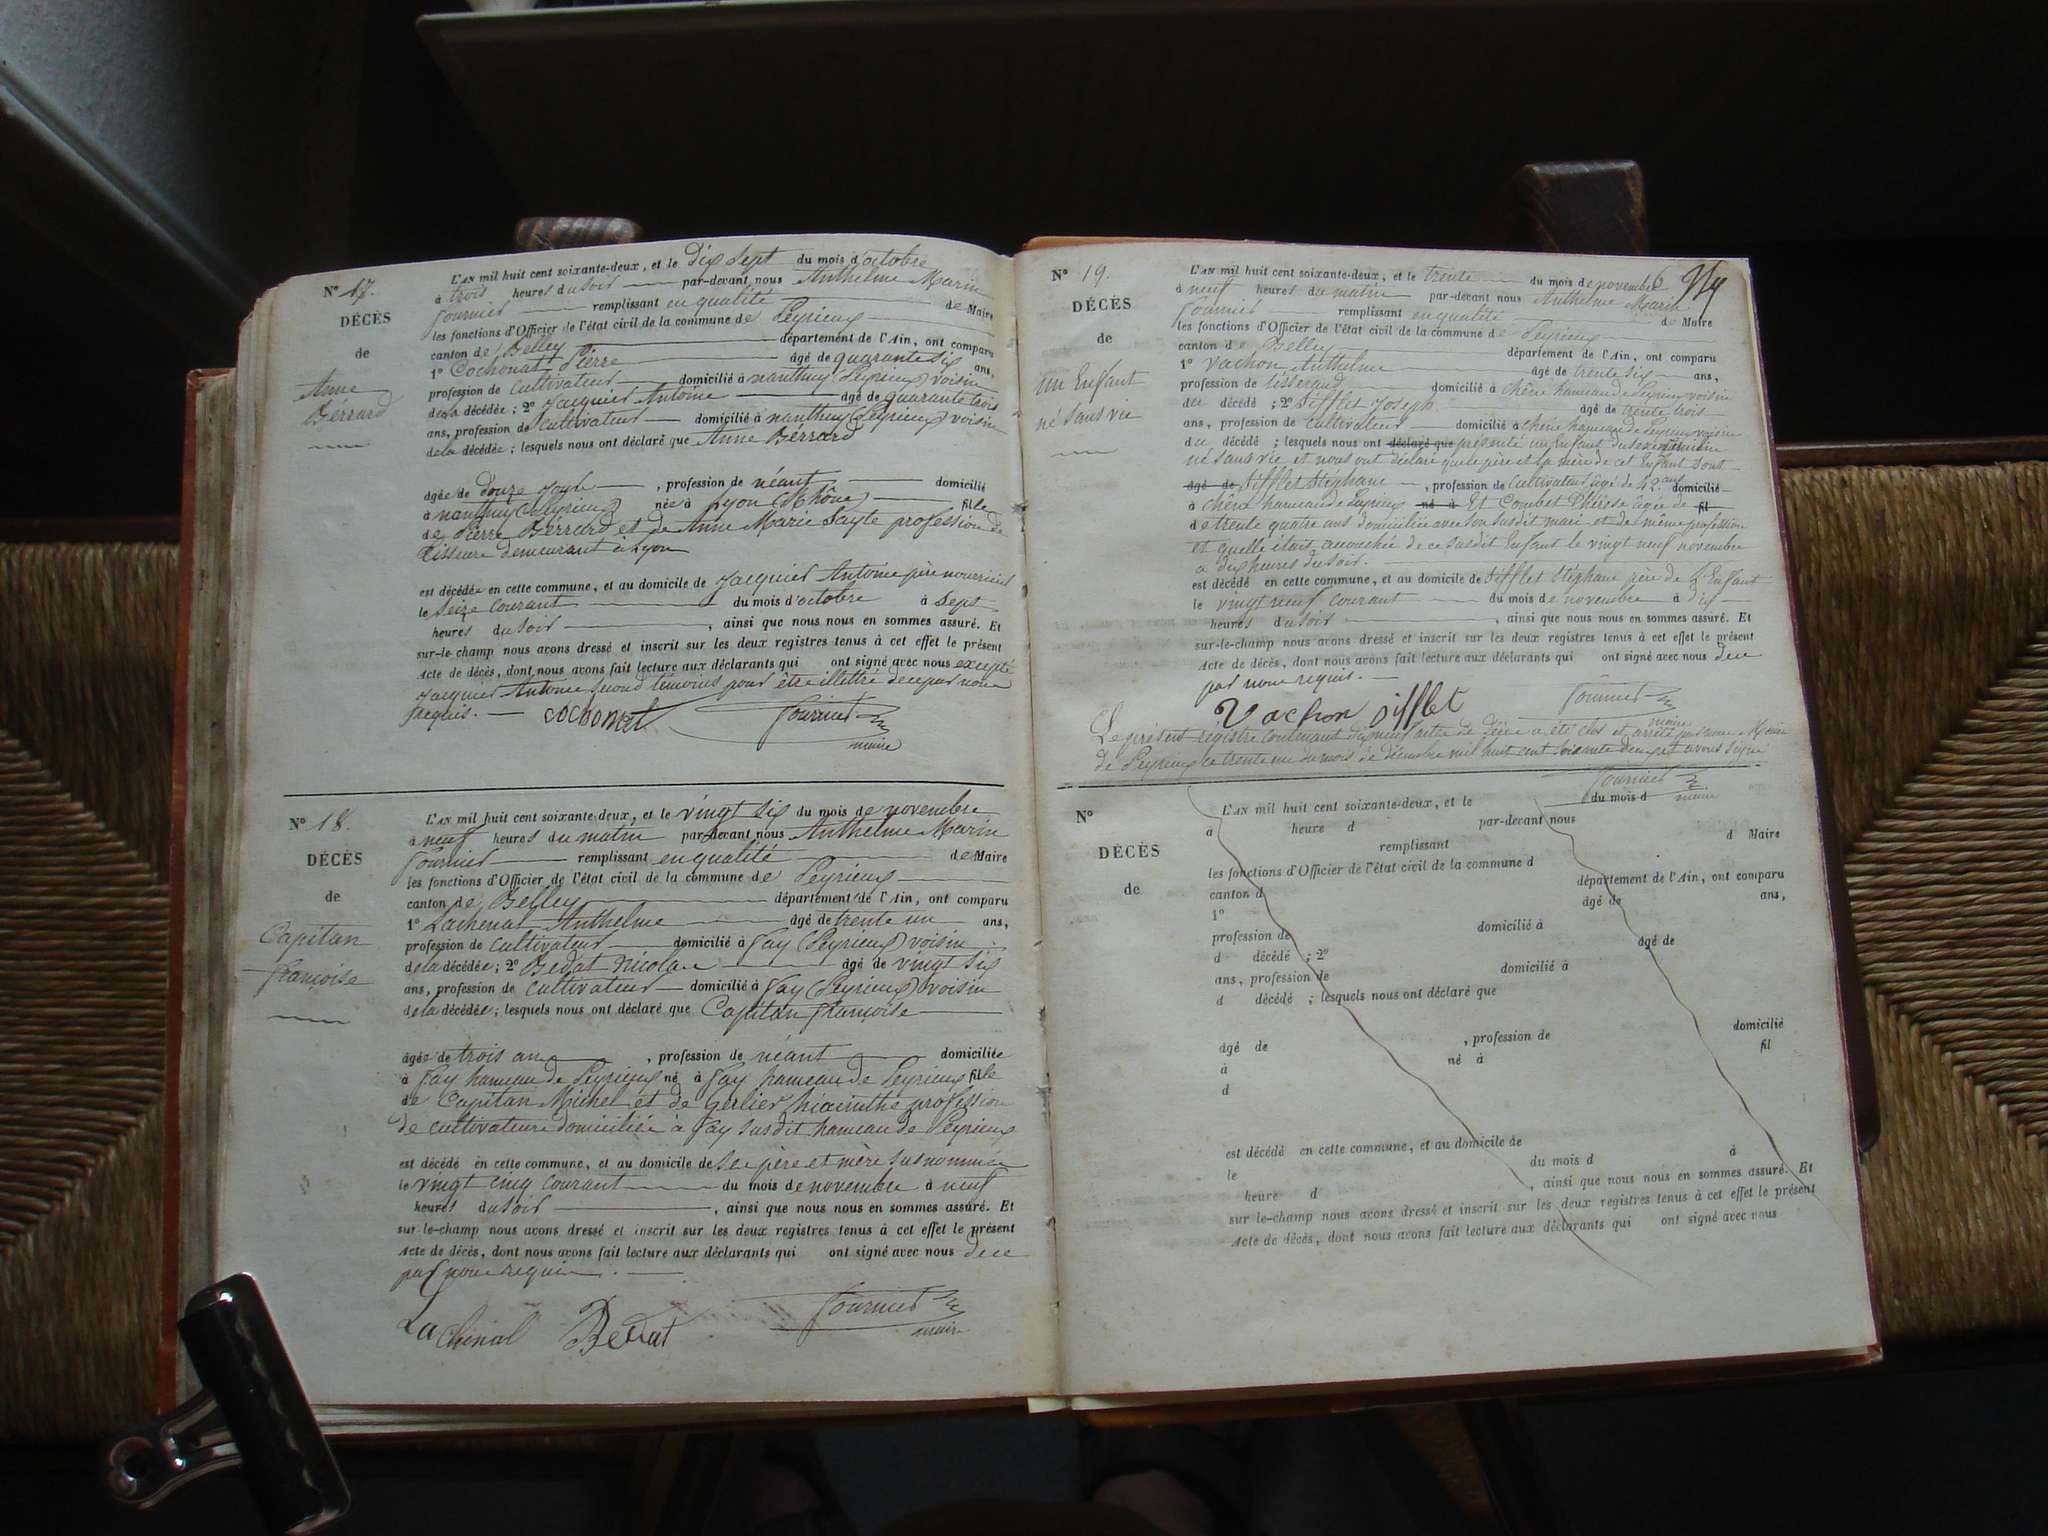 N° 17.
DÉCÈS
de
Anne
Bérrard
L'AN mil huit cent soixante-deux, et le Dix Sept du mois d'octobre
à trois heures du soir par-devant nous Anthelme Marin
Fournier remplissant en qualité de Maire
les fonctions d'Officier de l'état civil de la commune de Peyrieux
canton de Belley département de l'Ain, ont comparu
1° Cochonat Pierre âgé de quarante six ans,
profession de cultivateur domicilié à nanthuy (Peyrieux) voisin
de la décédée ; 2° Jacquier Antoine âgé de quarante trois
ans, profession de cultivateur domicilié à nanthuy (Peyrieux) voisin
de la décédée ; lesquels nous ont déclaré que Anne Bérrard
âgée de douze jours , profession de néant domicilié
à nanthuy (Peyrieux) née à Lyon (Rhône) fille
de Pierre Berrard et de Anne Marie profession de
tisseurs demeurant à Lyon
est décédée en cette commune, et au domicile de Jacquier Antoine père nourricier
le Seize courant du mois d'octobre à Sept
heures du soir , ainsi que nous nous en sommes assuré. Et
sur-le-champ nous avons dressé et inscrit sur les deux registres tenus à cet effet le présent
Acte de décès, dont nous avons fait lecture aux déclarants qui ont signé avec nous excepté
Jacquier Antoine second témoins pour être illettré de ce par nous
requis. cochonat Fournier
maire
N° 18.
DÉCÈS
de
Capitan
françoise
L'AN mil huit cent soixante-deux, et le vingt six du mois de novembre
à neuf heures du matin par-devant nous Anthelme Marin
Fournier remplissant en qualité de Maire
les fonctions d'Officier de l'état civil de la commune de Peyrieux
canton de Belley département de l'Ain, ont comparu
1° Lachenal Anthelme âgé de trente un ans,
profession de cultivateur domicilié à Fay (Peyrieux) voisin
de la décédée ; 2° Bedat Nicolas âgé de vingt six
ans, profession de cultivateur domicilié à Fay (Peyrieux) voisin
de la décédée ; lesquels nous ont déclaré que Capitan françoise
âgée de trois ans , profession de néant domiciliée
à Fay hameau de Peyrieux né à Fay hameau de Peyrieux fille
de Capitan Michel et de Gerlier hiacinthe profession
de cultivateurs domiciliés à Fay susdit hameau de Peyrieux
est décédé en cette commune, et au domicile de Ses père et mère susnommés
le vingt cinq courant du mois de novembre à neuf
heures du soir , ainsi que nous nous en sommes assuré. Et
sur-le-champ nous avons dressé et inscrit sur les deux registres tenus à cet effet le présent
Acte de décès, dont nous avons fait lecture aux déclarants qui ont signé avec nous de ce
par nous requis.
Lachenal Bedat Fournier
maire
N° 19.
DÉCÈS
de
un Enfant
né sans vie
L'AN mil huit cent soixante-deux, et le trente du mois de novembre
à neuf heures du matin par-devant nous Anthelme Marin
Fournier remplissant en qualité de Maire
les fonctions d'Officier de l'état civil de la commune de Peyrieux
canton de Belley département de l'Ain, ont comparu
1° Vachon Anthelme âgé de trente six ans,
profession de tisserand domicilié à chêne hameau de Peyrieux voisin
du décédé ; 2° Sifflet Joseph âgé de trente trois
ans, profession de cultivateur domicilié à chêne hameau de Peyrieux voisin
du décédé ; lesquels nous ont déclaré que présenté un Enfant du sexe
né sans vie et nous ont déclaré que le père et la mère de cet Enfant sont
âgé de Sifflet Stéphane , profession de cultivateur âgé de 42 ans domicilié
à chêne hameau de Peyrieux né à Et Combet Thérèse âgée de fil
de trente quatre ans domiciliée avec son susdit mari et de même profession
et quelle était accouchée de ce susdit Enfant le vingt neuf novembre
à dix heures du soir.
est décédé en cette commune, et au domicile de Sifflet Stéphane père de l'Enfant
le vingt neuf courant du mois de novembre à dix
heures du soir , ainsi que nous nous en sommes assuré. Et
sur-le-champ nous avons dressé et inscrit sur les deux registres tenus à cet effet le présent
Acte de décès, dont nous avons fait lecture aux déclarants qui ont signé avec nous de ce
par nous requis.
Vachon Sifflet Fournier
maire
Le présent registre contenant dix neuf actes de Décès a été clos et arrêté par nous Maire
de Peyrieux ce trente un du mois de décembre mil huit cent soixante deux et avons signé
Fournier
maire
N°
DÉCÈS
de
L'AN mil huit cent soixante-deux, et le du mois d
à heure d par-devant nous
remplissant d Maire
les fonctions d'Officier de l'état civil de la commune d
canton d département de l'Ain, ont comparu
1° âgé de ans,
profession de domicilié à
d décédé ; 2° âgé de
ans, profession de domicilié à
d décédé ; lesquels nous ont déclaré que
âgé de , profession de domicilié
à né à fil
d
est décédé en cette commune, et au domicile de
le du mois d à
heure d , ainsi que nous nous en sommes assuré. Et
sur-le-champ nous avons dressé et inscrit sur les deux registres tenus à cet effet le présent
Acte de décès, dont nous avons fait lecture aux déclarants qui ont signé avec nous